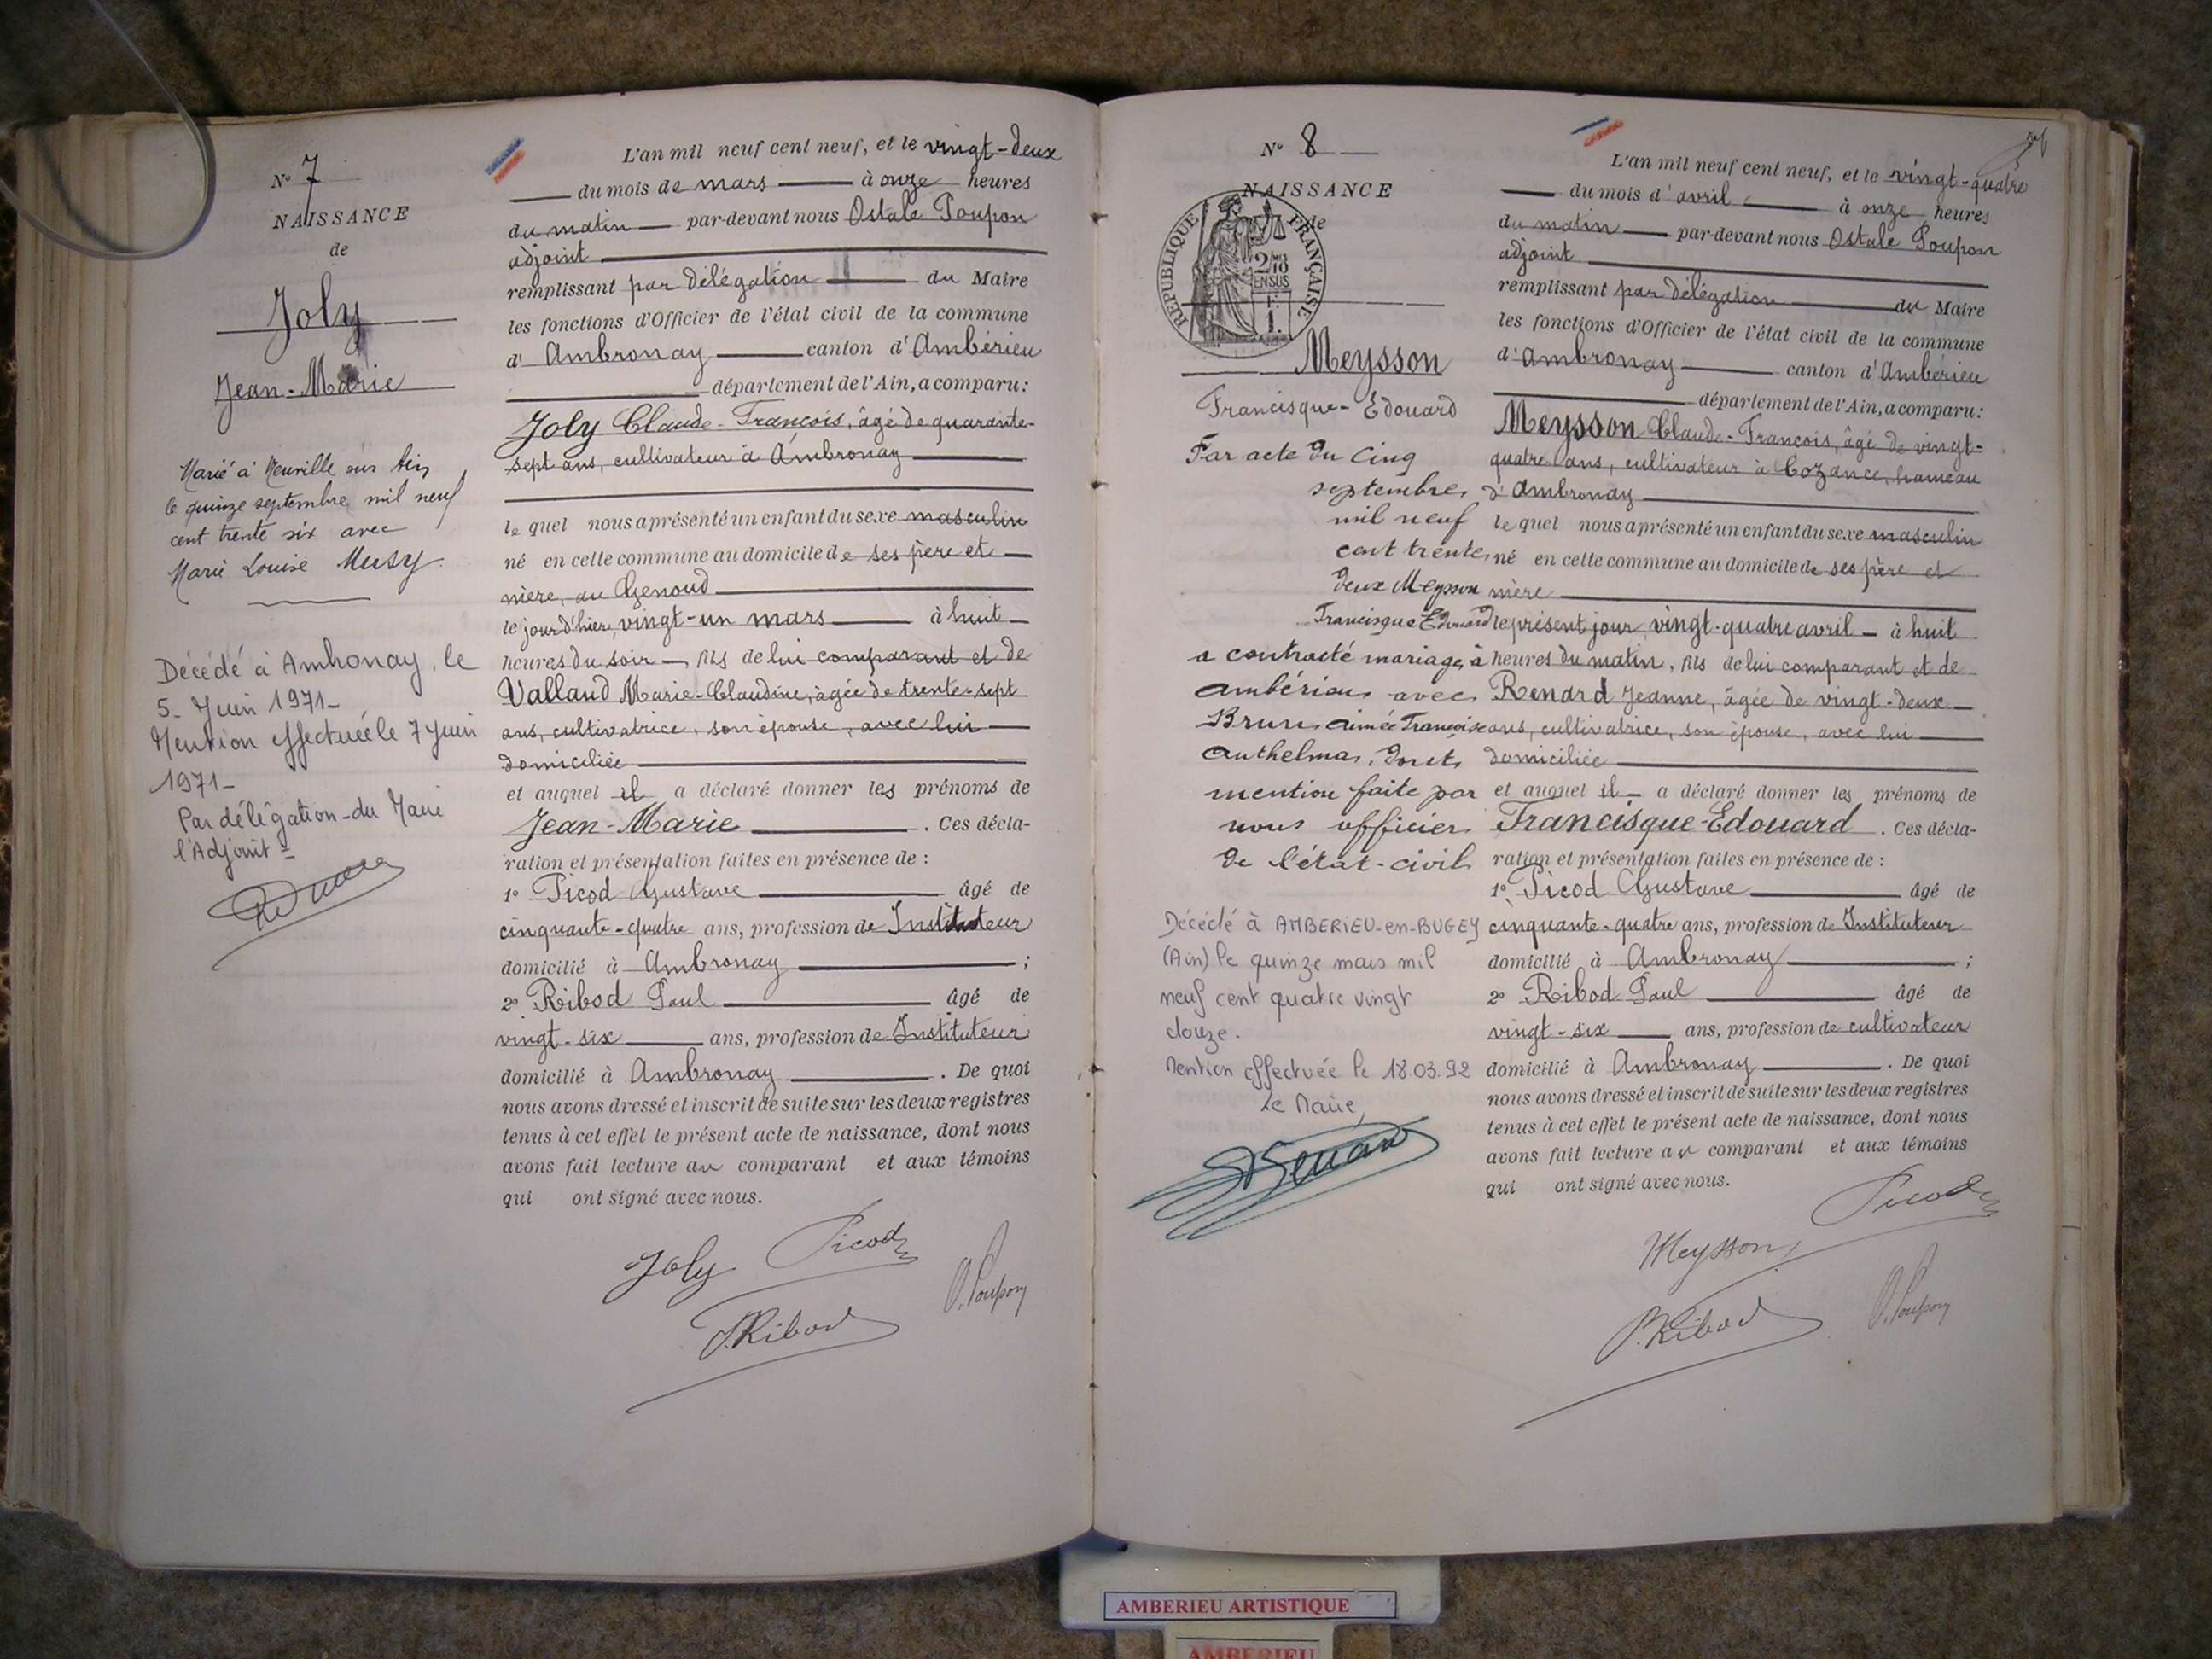 N° 7
NAISSANCE
de
Joly
Jean-Marie
Marié à Neuville sur Ain
le quinze septembre mil neuf
cent trente six avec
Marie Louise Musy.
Décédé à Ambronay, le
5 - Juin 1971 -
Mention effectuée le 7 Juin
1971 -
Par délégation du Maire
l'Adjoint
L'an mil neuf cent neuf, et le vingt-deux
du mois de mars à onze heures
du matin par-devant nous Ostale Poupon
adjoint
remplissant par délégation du Maire
les fonctions d'Officier de l'état civil de la commune
d' Ambronay canton d' Ambérieu
département de l'Ain, a comparu :
Joly Claude-François, âgé de quarante-
sept ans, cultivateur à Ambronay
le quel nous a présenté un enfant du sexe masculin
né en cette commune au domicile de ses père et
mère, au Genoud
le jour d'hier, vingt-un mars à huit
heures du soir, fils de lui comparant et de
Valland Marie-Claudine, âgée de trente-sept
ans, cultivatrice, son épouse, avec lui
domiciliée
et auquel il a déclaré donner les prénoms de
Jean-Marie . Ces décla-
ration et présentation faites en présence de :
1° Picod Gustave âgé de
cinquante-quatre ans, profession de Instituteur
domicilié à Ambronay ;
2° Ribod Paul âgé de
vingt-six ans, profession de Instituteur
domicilié à Ambronay . De quoi
nous avons dressé et inscrit de suite sur les deux registres
tenus à cet effet le présent acte de naissance, dont nous
avons fait lecture au comparant et aux témoins
qui ont signé avec nous.
Joly Picod
P. Ribod O. Poupon
N° 8
NAISSANCE
de
REPUBLIQUE FRANÇAISE
2/10
EN SUS
Meysson
Francisque-Édouard
Par acte du cinq
septembre
mil neuf
cent trente
deux Meysson
Francisque Edouard
a contracté mariage à
ambérieu avec
Brun Aimée Françoise
Anthelma, dont
mention faite par
nous officier
de l'état-civil
Décédé à AMBERIEU-en-BUGEY
(Ain) le quinze mars mil
neuf cent quatre vingt
douze.
Mention effectuée le 18.03.92
Le Maire,
L'an mil neuf cent neuf, et le vingt-quatre
du mois d'avril à onze heures
du matin par-devant nous Ostale Poupon
adjoint
remplissant par délégation du Maire
les fonctions d'Officier de l'état civil de la commune
d'Ambronay canton d'Ambérieu
département de l'Ain, a comparu :
Meysson Claude-François, âgé de vingt-
quatre ans, cultivateur à Cozance, hameau
d'Ambronay
le quel nous a présenté un enfant du sexe masculin
né en cette commune au domicile de ses père et
mère
le présent jour, vingt-quatre avril à huit
heures du matin, fils de lui comparant et de
Renard Jeanne, âgée de vingt-deux
ans, cultivatrice, son épouse, avec lui
domiciliée
et auquel il a déclaré donner les prénoms de
Francisque-Edouard . Ces décla-
ration et présentation faites en présence de :
1° Picod Gustave âgé de
cinquante-quatre ans, profession de Instituteur
domicilié à Ambronay ;
2° Ribod Paul âgé de
vingt-six ans, profession de cultivateur
domicilié à Ambronay . De quoi
nous avons dressé et inscrit de suite sur les deux registres
tenus à cet effet le présent acte de naissance, dont nous
avons fait lecture au comparant et aux témoins
qui ont signé avec nous.
Picod
Meysson
P. Ribod O. Poupon
AMBERIEU ARTISTIQUE
AMBERIEU